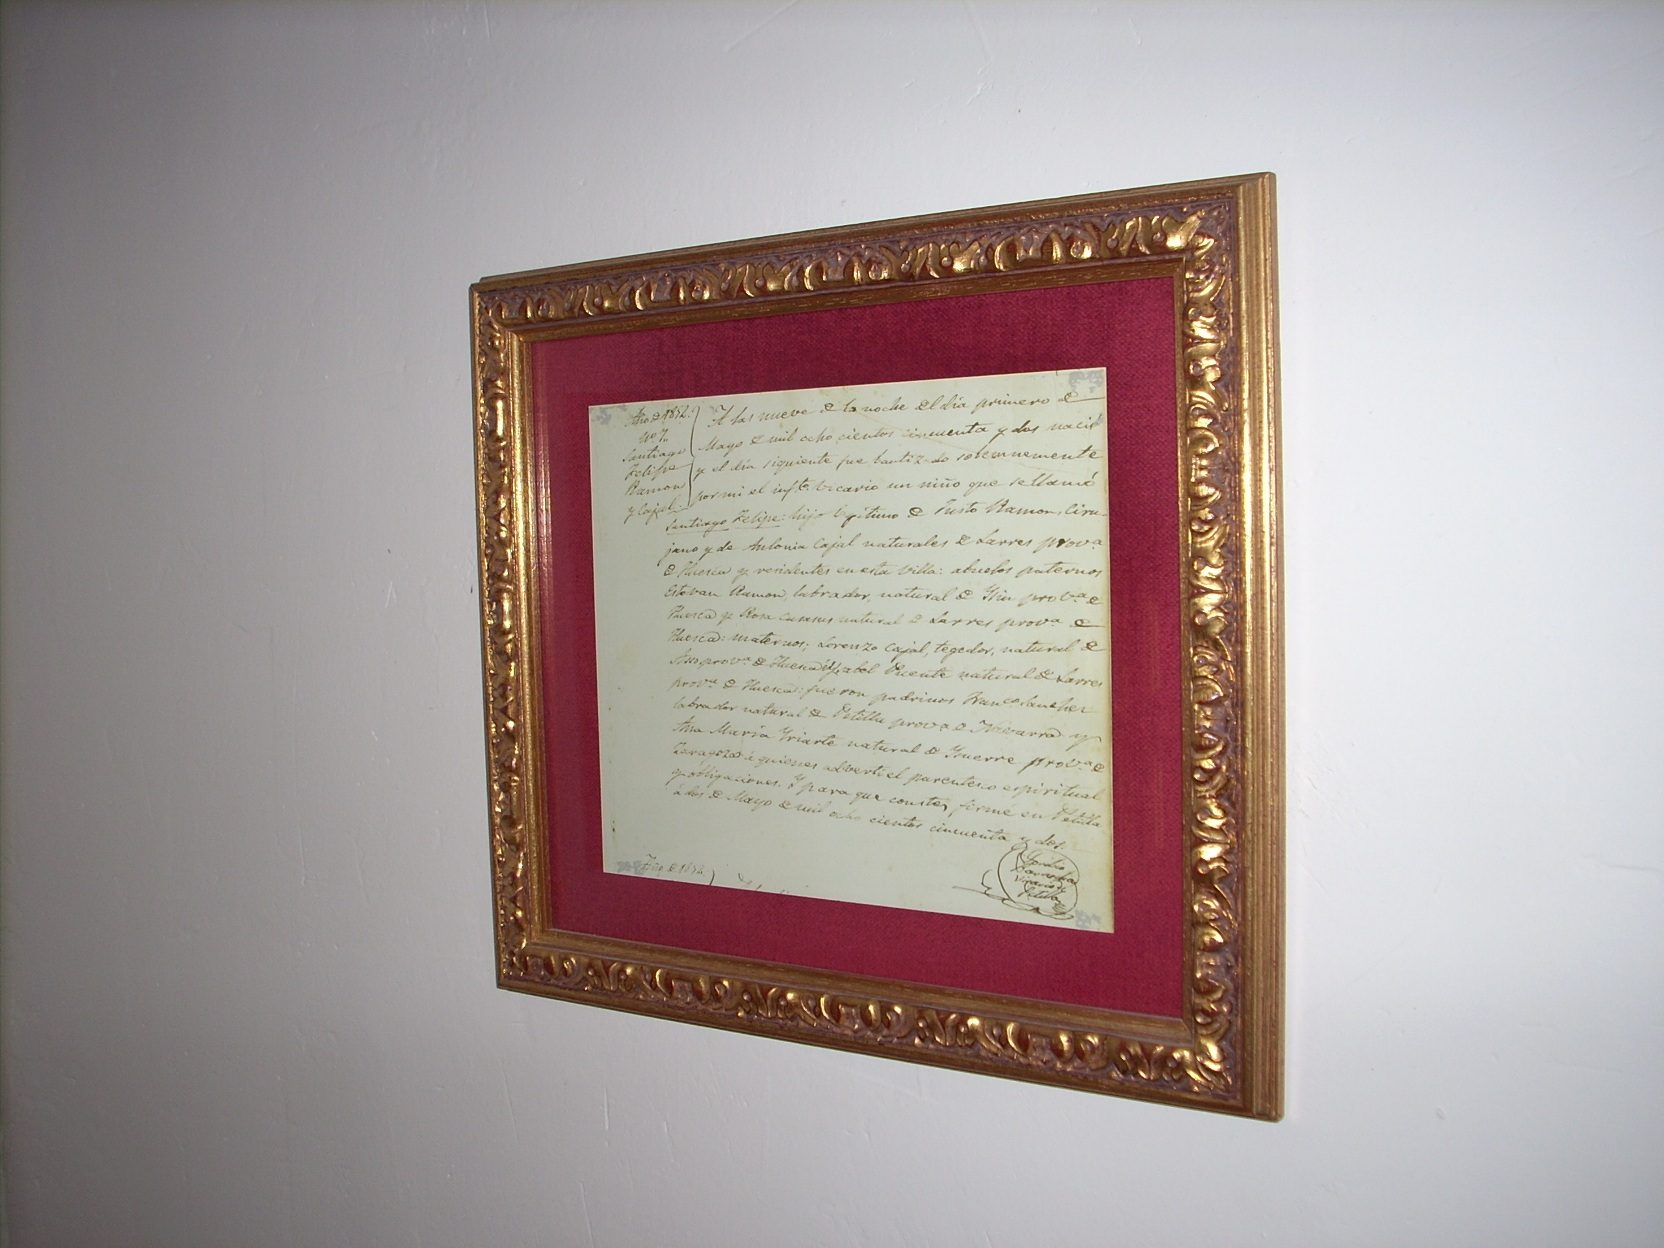 Año de 1852.
Nº 7.
Santiago
Felipe
Ramon
y Cajal.
A las nueve de la noche del dia primero de
Mayo de mil ocho cientos cincuenta y dos nació
y el dia siguiente fue bautizado solemnemente
por mi el infto. Vicario un niño que se llamó
Santiago Felipe: hijo legitimo de Justo Ramon, Ciru
jano y de Antonia Cajal naturales de Larres prov.a
de Huesca y residentes en esta villa: abuelos paternos
Estevan Ramon, labrador, natural de Isin prov.a de
Huesca y Rosa Casasus natural de Larres prov.a de
Huesca: maternos; Lorenzo Cajal, tegedor, natural de
Aso prov.a de Huesca é Ysabel Puente natural de Larres
prov.a de Huesca: fueron padrinos Franco. Sanchez
labrador natural de Petilla prov.a de Navarra y
Ana María Yriarte natural de Isuerre prov.a de
Zaragoza á quienes advertí el parentesco espiritual
y obligaciones. Y para que conste, firmé en Petilla
á dos de Mayo de mil ocho cientos cincuenta y dos.
Vicario de
Petilla
Año de 1852